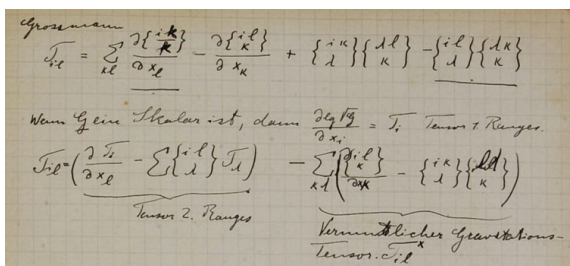 Grossmann
T_il = Σ_κl ∂{iκ κ}/∂x_l − ∂{il κ}/∂x_κ + {iκ λ}{λl κ} − {il λ}{λκ κ}
Wenn G ein Skalar ist, dann ∂lg√G/∂x_i = T_i Tensor 1. Ranges.
T_il = (∂T_i/∂x_l − Σ{il λ}T_λ) − Σ_κλ(∂{il κ}/∂x_κ − {iκ λ}{λl κ})
Tensor 2. Ranges
Vermutlicher Gravitations-
Tensor. T_il^x